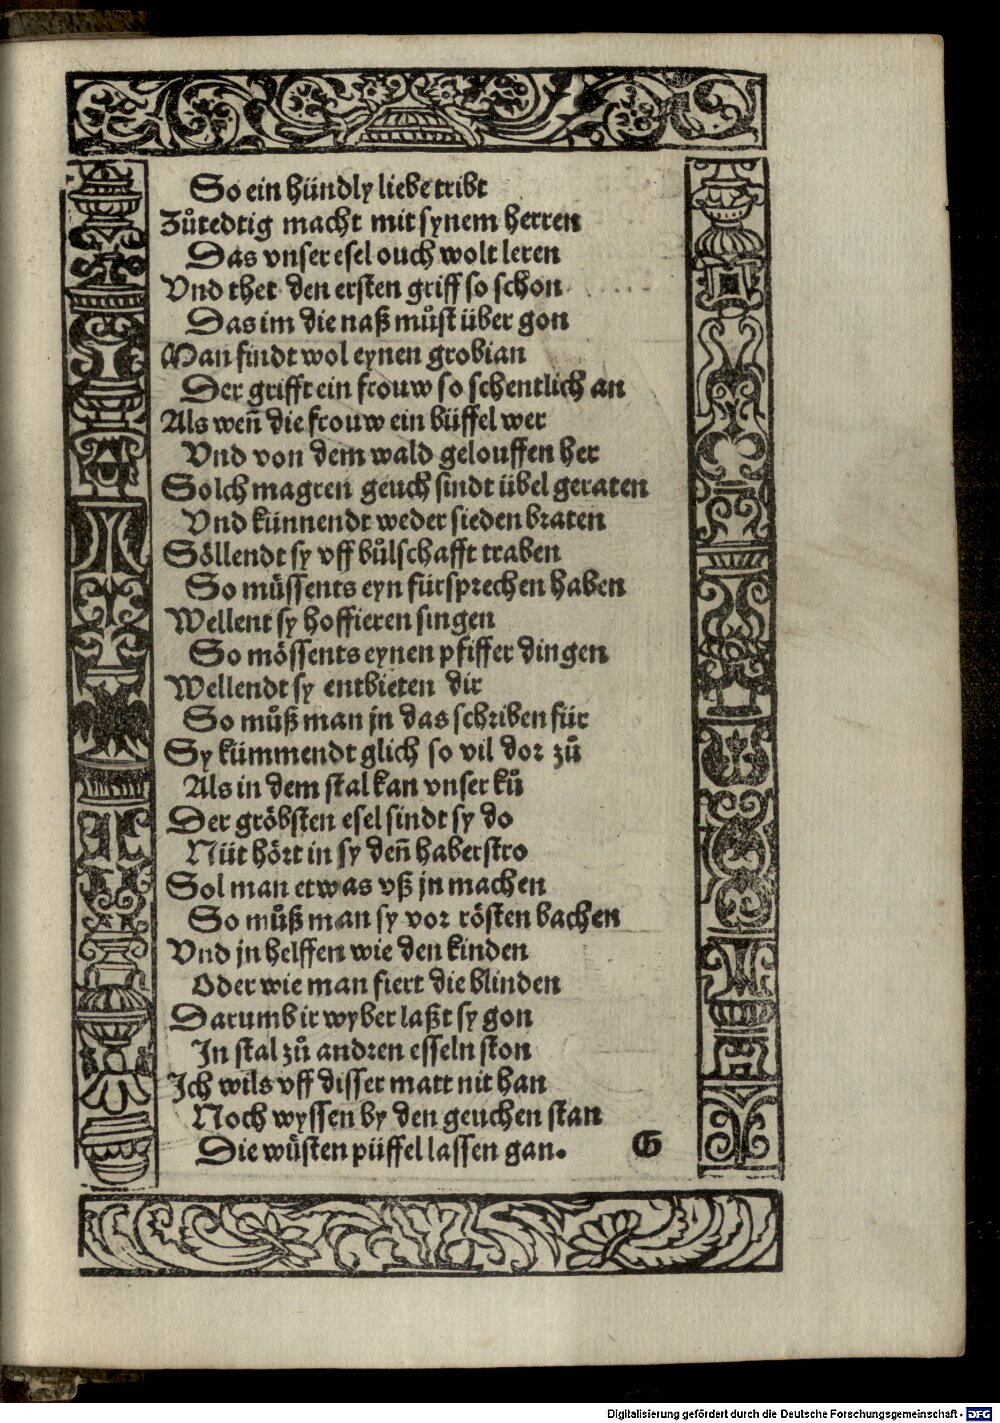 So ein hündly liebe tribt
Zůtedtig macht mit synem herren
Das vnser esel ouch wolt leren
Vnd thet den ersten griff so schon
Das im die naß můst über gon
Man findt wol eynen grobian
Der grifft ein frouw so schentlich an
Als weñ die frouw ein büffel wer
Vnd von dem wald gelouffen her
Solch magren geuch sindt übel geraten
Vnd künnendt weder sieden braten
Söllendt sy vff bůlschafft traben
So müssents eyn fürsprechen haben
Wellent sy hoffieren singen
So mössents eynen pfiffer dingen
Wellendt sy entbieten dir
So můß man jn das schriben für
Sy kümmendt glich so vil dor zů
Als in dem stal kan vnser ků
Der gröbsten esel sindt sy do
Nüt hört in sy deñ haberstro
Sol man etwas vß jn machen
So můß man sy vor rösten bachen
Vnd jn helffen wie den kinden
Oder wie man fiert die blinden
Darumb ir wyber laßt sy gon
In stal zů andren esseln ston
Ich wils vff disser matt nit han
Noch wyssen by den geuchen stan
Die wůsten püffel lassen gan. G
Digitalisierung gefördert durch die Deutsche Forschungsgemeinschaft - DFG